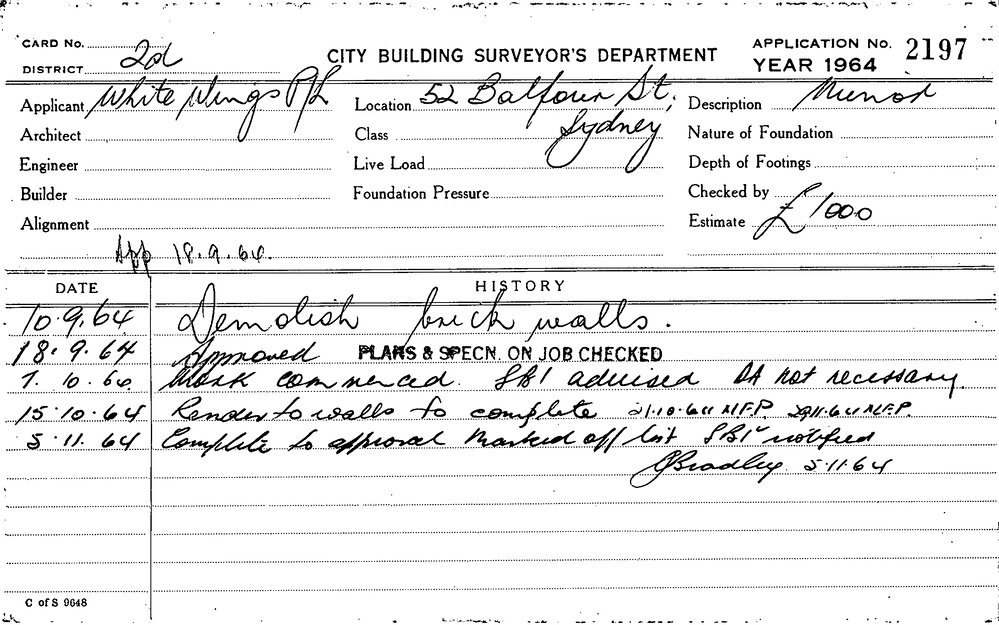 CARD No.
CITY BUILDING SURVEYOR'S DEPARTMENT
APPLICATION No. 2197
DISTRICT 2d
YEAR 1964
Applicant White Wings P/L
Location 52 Balfour St,
Sydney
Description Minor
Architect
Class
Nature of Foundation
Engineer
Live Load
Depth of Footings
Builder
Foundation Pressure
Checked by
Alignment
Estimate £1000
App 18.9.64.
DATE HISTORY
10.9.64 Demolish brick walls.
18.9.64 Approved PLANS & SPECN. ON JOB CHECKED
7.10.64 Work commenced. SBI advised DA not necessary
15.10.64 Render to walls to complete 21.10.64 N.F.P. N.F.P.
5.11.64 Complete to approval Marked off list SBI notified
Bradley 5.11.64
C of S 9648